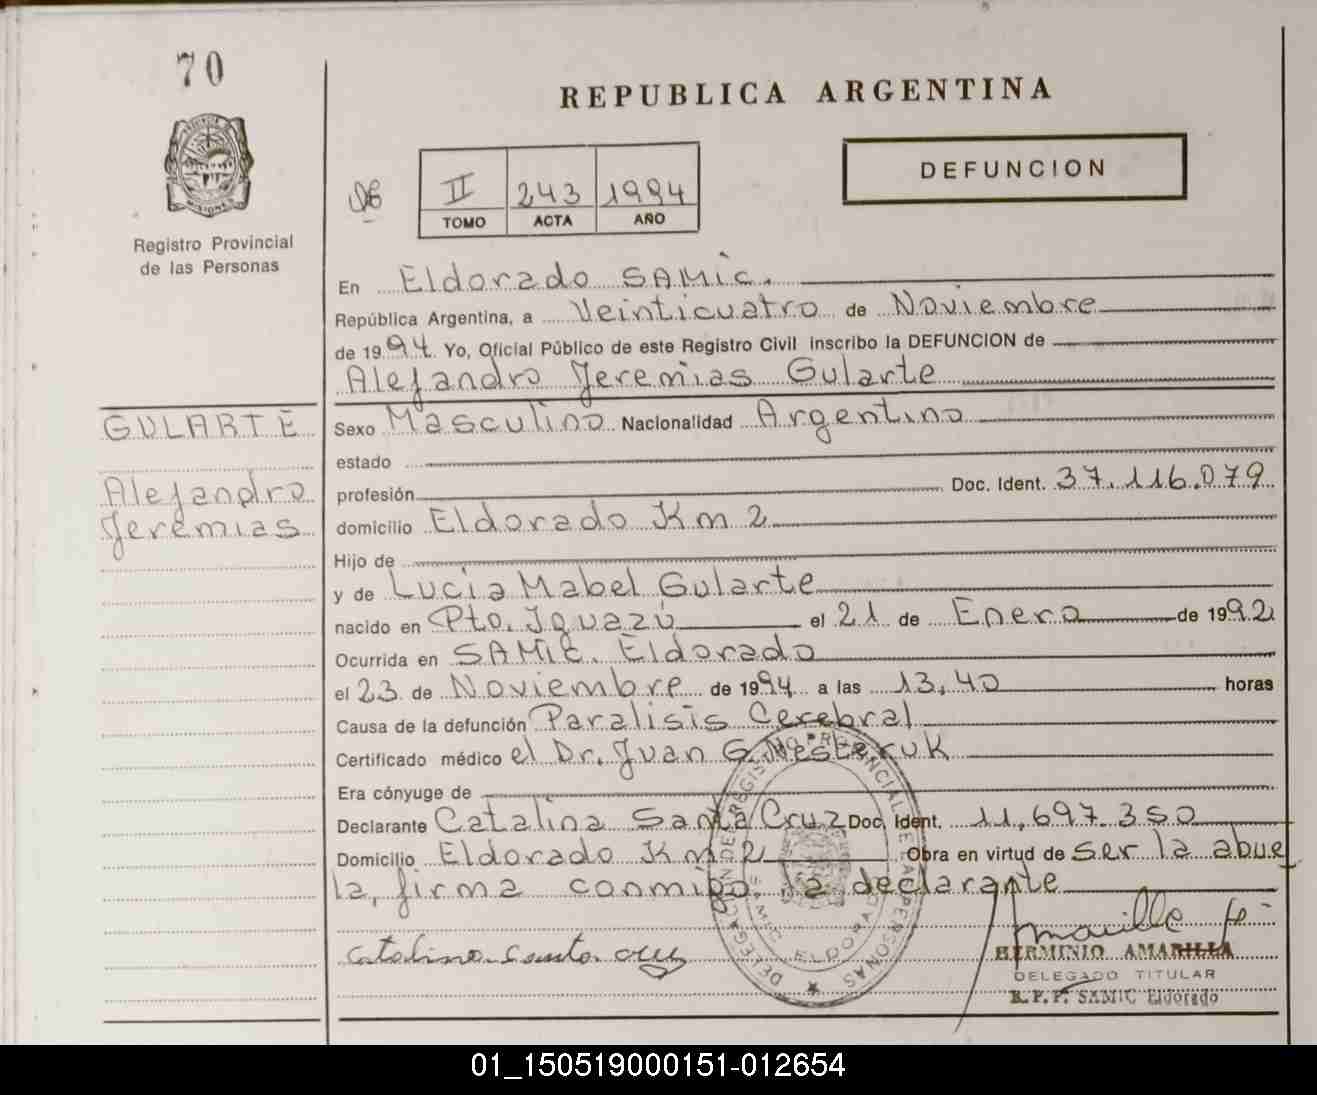 70
REPUBLICA ARGENTINA
DEFUNCION
II 243 1994
TOMO ACTA AÑO
PROVINCIA DE
MISIONES
Registro Provincial
de las Personas
En Eldorado SAMic.
República Argentina, a Veinticuatro de Noviembre
de 1994. Yo, Oficial Público de este Registro Civil inscribo la DEFUNCION de
Alejandro Jeremias Gularte
GULARTE
Alejandro
Jeremias
Sexo Masculino Nacionalidad Argentino
estado
profesión Doc. Ident. 37.116.079
domicilio Eldorado Km 2
Hijo de
y de Lucia Mabel Gularte
nacido en Pto. Iguazú el 21 de Enero de 1992
Ocurrida en SAMic. Eldorado
el 23 de Noviembre de 1994 a las 13,40 horas
Causa de la defunción Paralisis Cerebral
Certificado médico el Dr. Juan G. Nesteruk
Era cónyuge de
Declarante Catalina Santa Cruz Doc. Ident. 11.697.350
Domicilio Eldorado Km 2 Obra en virtud de ser la abue
la, firma conmigo la declarante
Catalina Santa Cruz
DELEGACION DE REGISTRO PROVINCIAL DE LAS PERSONAS
SAMIC ELDORADO
HERMINIO AMARILLA
DELEGADO TITULAR
R.P.P. SAMIC Eldorado
01_150519000151-012654